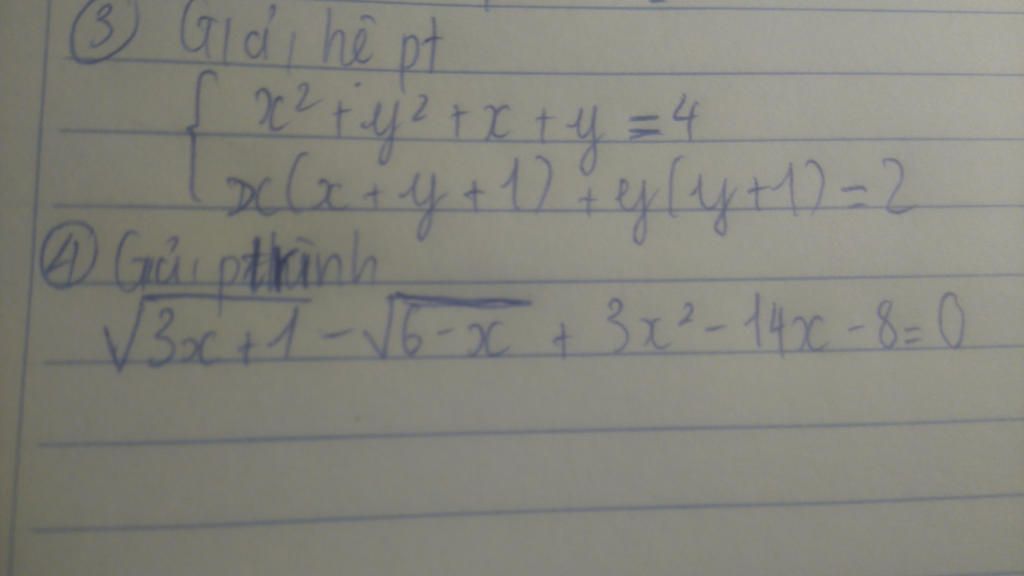 ③ Giải hệ pt
{ x² + y² + x + y = 4
x(x + y + 1) + y(y + 1) = 2
④ Giải ptrình
√3x + 1 - √6 - x + 3x² - 14x - 8 = 0